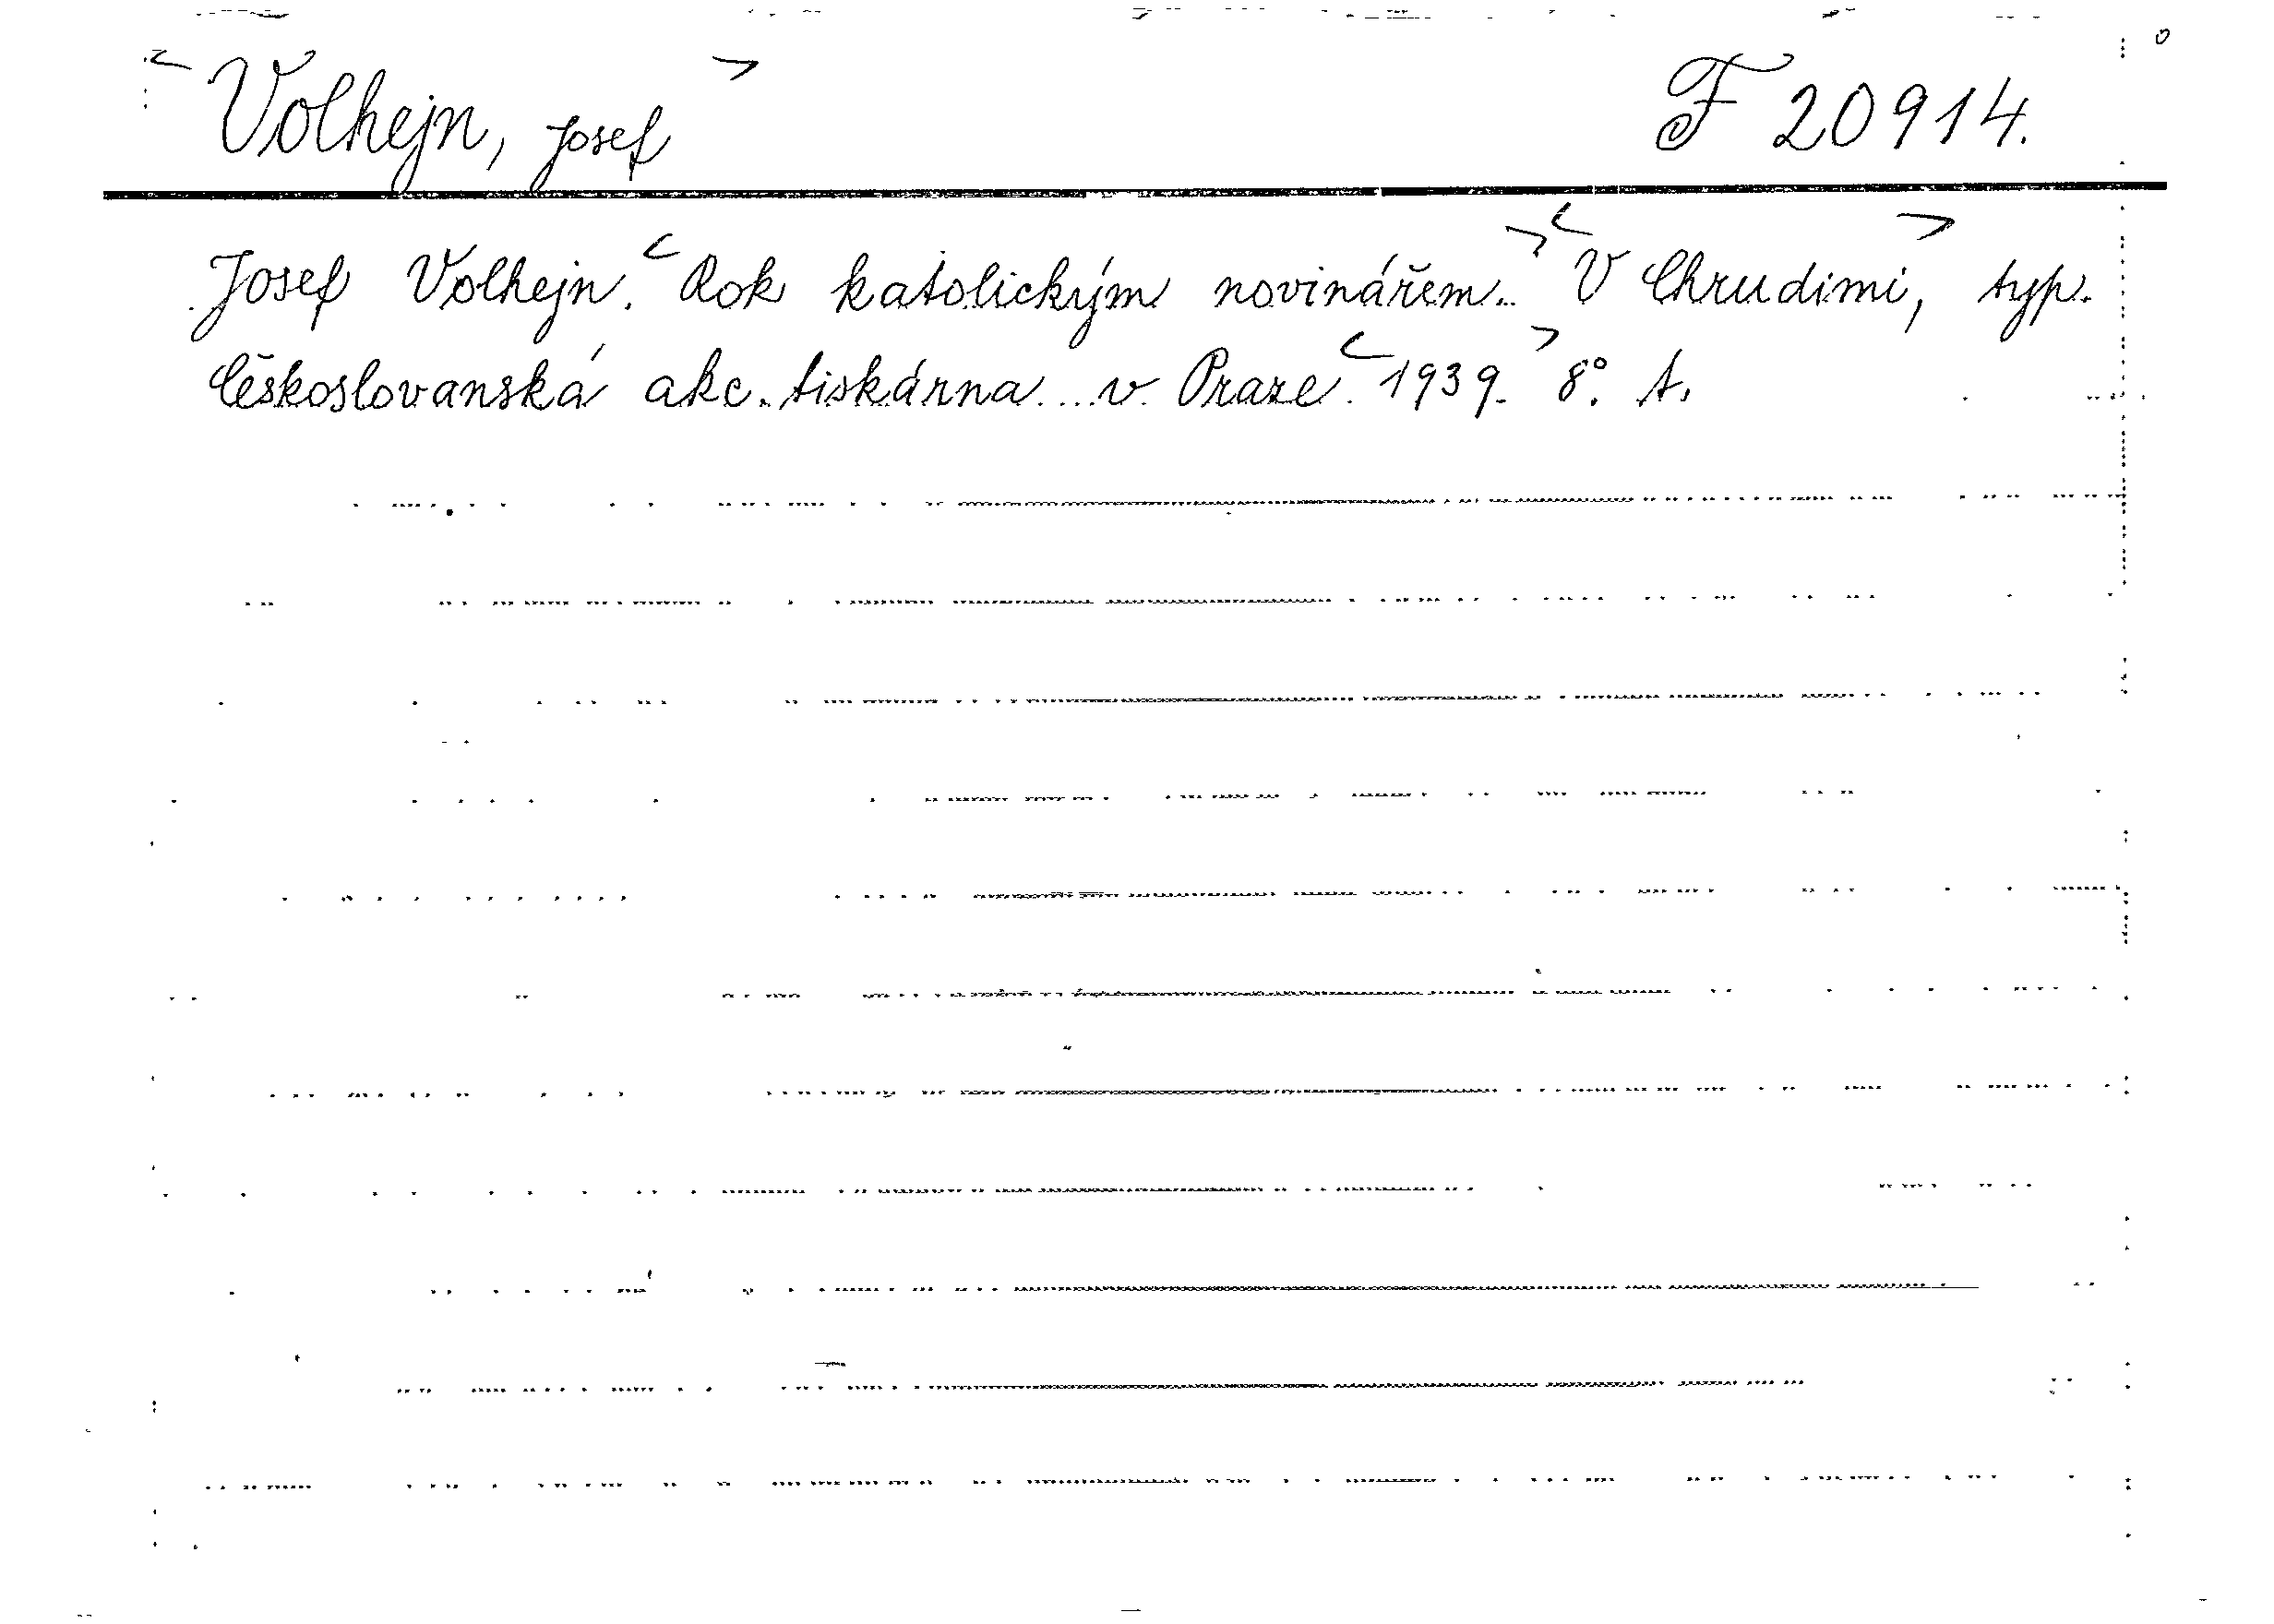 <Volhejn, Josef> F 20914.
Josef Volhejn. <Rok katolickým novinářem..> <V Chrudimi,> typ.
Českoslovanská akc. tiskárna... v Praze. <1939.> 8°. A.